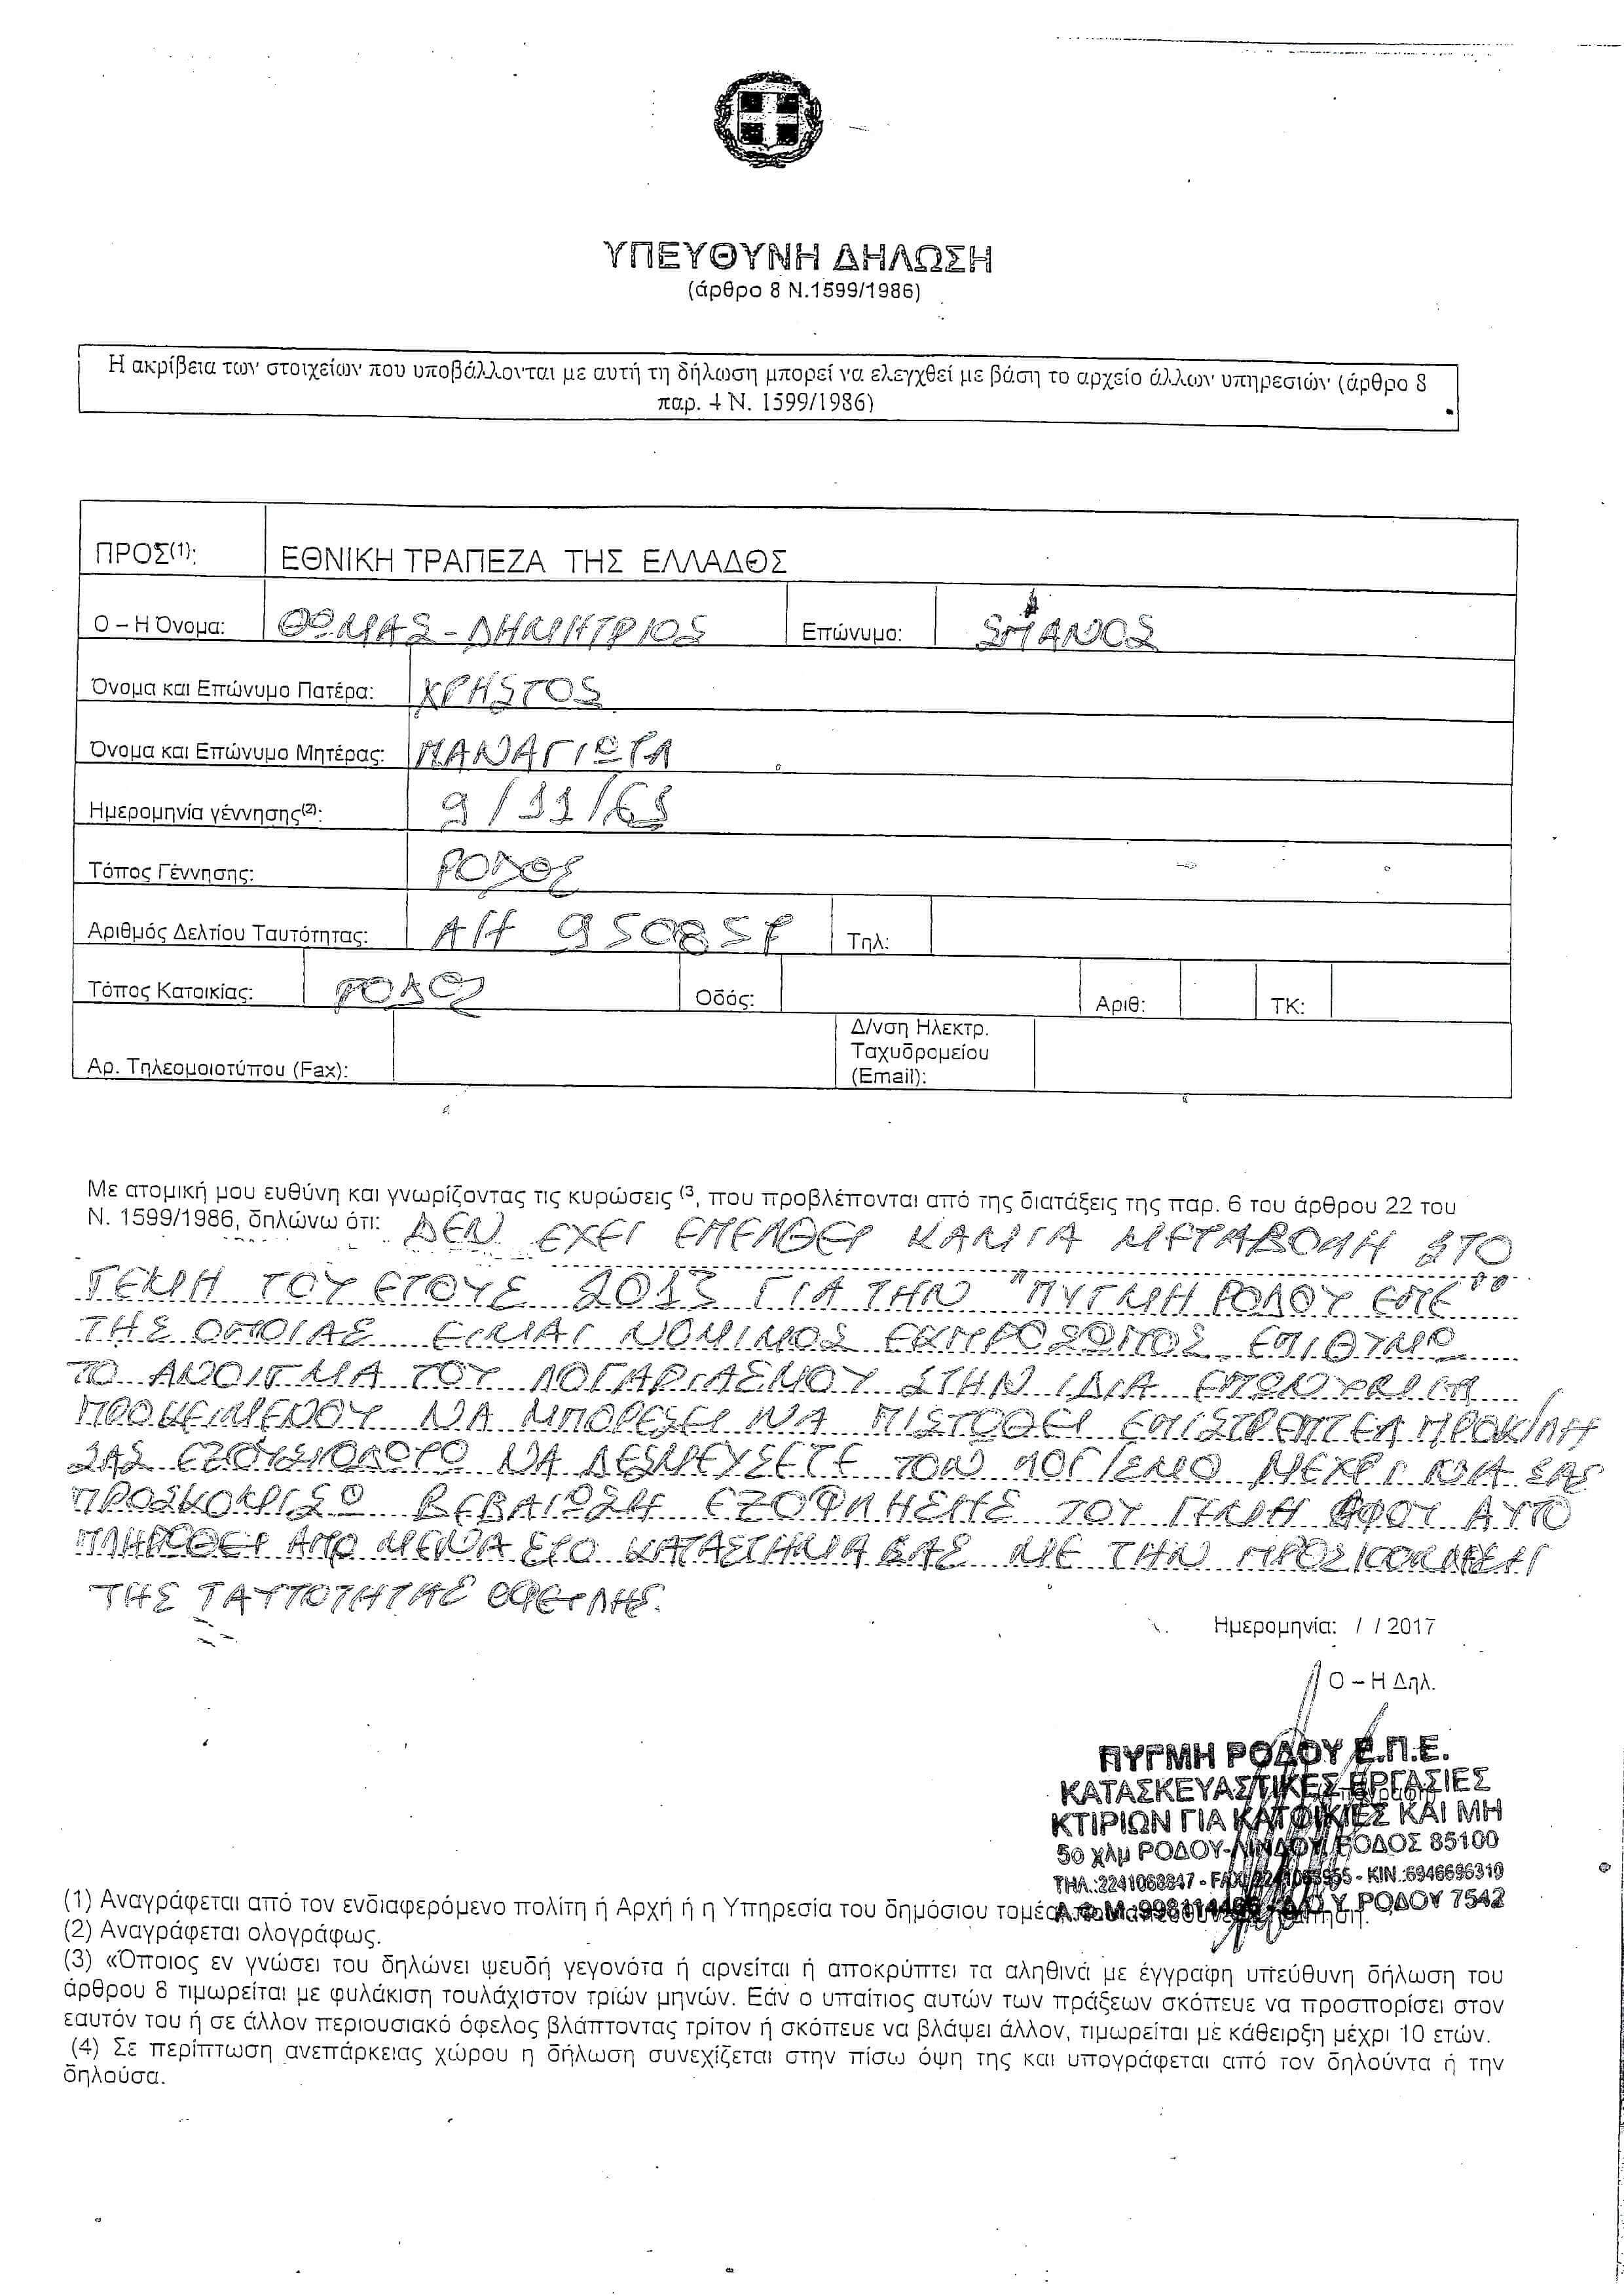 ΥΠΕΥΘΥΝΗ ΔΗΛΩΣΗ
(άρθρο 8 Ν.1599/1986)
Η ακρίβεια των στοιχείων που υποβάλλονται με αυτή τη δήλωση μπορεί να ελεγχθεί με βάση το αρχείο άλλων υπηρεσιών (άρθρο 8
παρ. 4 Ν. 1599/1986)
ΠΡΟΣ(1): ΕΘΝΙΚΗ ΤΡΑΠΕΖΑ ΤΗΣ ΕΛΛΑΔΟΣ
Ο – Η Όνομα: ΘΩΜΑΣ-ΔΗΜΗΤΡΙΟΣ Επώνυμο: ΣΠΑΝΟΣ
Όνομα και Επώνυμο Πατέρα: ΧΡΗΣΤΟΣ
Όνομα και Επώνυμο Μητέρας: ΠΑΝΑΓΙΩΤΑ
Ημερομηνία γέννησης(2):
Τόπος Γέννησης: ΡΟΔΟΣ
Αριθμός Δελτίου Ταυτότητας: Τηλ:
Τόπος Κατοικίας: ΡΟΔΟΣ Οδός: Αριθ: ΤΚ:
Αρ. Τηλεομοιοτύπου (Fax): Δ/νση Ηλεκτρ.
Ταχυδρομείου
(Email):
Με ατομική μου ευθύνη και γνωρίζοντας τις κυρώσεις (3, που προβλέπονται από της διατάξεις της παρ. 6 του άρθρου 22 του
Ν. 1599/1986, δηλώνω ότι: ΔΕΝ ΕΧΕΙ ΕΠΕΛΘΕΙ ΚΑΜΙΑ ΜΕΤΑΒΟΛΗ ΣΤΟ
ΓΕΜΗ ΤΟΥ ΕΤΟΥΣ 2013 ΓΙΑ ΤΗΝ "ΠΥΓΜΗ ΡΟΔΟΥ ΕΠΕ"
ΤΗΣ ΟΠΟΙΑΣ ΕΙΜΑΙ ΝΟΜΙΜΟΣ ΕΚΠΡΟΣΩΠΟΣ. ΕΠΙΘΥΜΩ
ΤΟ ΑΝΟΙΓΜΑ ΤΟΥ ΛΟΓΑΡΙΑΣΜΟΥ ΣΤΗΝ ΙΔΙΑ ΕΠΩΝΥΜΙΑ
ΠΡΟΚΕΙΜΕΝΟΥ ΝΑ ΜΠΟΡΕΣΕΙ ΝΑ ΠΙΣΤΩΘΕΙ ΕΠΙΣΤΡΕΠΤΕΑ ΠΡΟΚ/ΛΗ
ΣΑΣ ΕΞΟΥΣΙΟΔΟΤΩ ΝΑ ΔΕΣΜΕΥΣΕΤΕ ΤΟΝ ΛΟΓ/ΣΜΟ ΜΕΧΡΙ ΝΑ ΣΑΣ
ΠΡΟΣΚΟΜΙΣΩ ΒΕΒΑΙΩΣΗ ΕΞΟΦΛΗΣΗΣ ΤΟΥ ΓΕΜΗ ΑΦΟΥ ΑΥΤΟ
ΠΛΗΡΩΘΕΙ ΑΠΟ ΜΕΝΑ ΣΤΟ ΚΑΤΑΣΤΗΜΑ ΣΑΣ ΜΕ ΤΗΝ ΠΡΟΣΚΟΜΙΣΗ
ΤΗΣ ΤΑΥΤΟΤΗΤΑΣ ΟΦΕΙΛΗΣ.
Ημερομηνία: / / 2017
Ο – Η Δηλ.
ΠΥΓΜΗ ΡΟΔΟΥ Ε.Π.Ε.
ΚΑΤΑΣΚΕΥΑΣΤΙΚΕΣ ΕΡΓΑΣΙΕΣ
ΚΤΙΡΙΩΝ ΓΙΑ ΚΑΤΟΙΚΙΕΣ ΚΑΙ ΜΗ
5ο χλμ ΡΟΔΟΥ-ΛΙΝΔΟΥ, ΡΟΔΟΣ 85100
ΤΗΛ.:2241068847 - FAX: - ΚΙΝ.:6946696310
Α.Φ.Μ. Δ.Ο.Υ. ΡΟΔΟΥ 7542
(1) Αναγράφεται από τον ενδιαφερόμενο πολίτη ή Αρχή ή η Υπηρεσία του δημόσιου τομέα
(2) Αναγράφεται ολογράφως.
(3) «Όποιος εν γνώσει του δηλώνει ψευδή γεγονότα ή αρνείται ή αποκρύπτει τα αληθινά με έγγραφη υπεύθυνη δήλωση του
άρθρου 8 τιμωρείται με φυλάκιση τουλάχιστον τριών μηνών. Εάν ο υπαίτιος αυτών των πράξεων σκόπευε να προσπορίσει στον
εαυτόν του ή σε άλλον περιουσιακό όφελος βλάπτοντας τρίτον ή σκόπευε να βλάψει άλλον, τιμωρείται με κάθειρξη μέχρι 10 ετών.
(4) Σε περίπτωση ανεπάρκειας χώρου η δήλωση συνεχίζεται στην πίσω όψη της και υπογράφεται από τον δηλούντα ή την
δηλούσα.